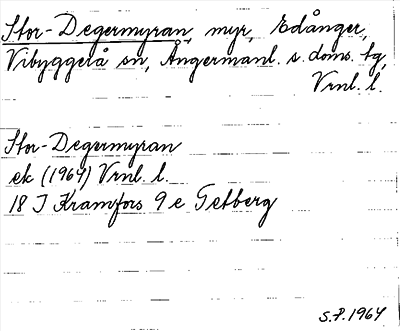 Stor-Degermyran, myr, Edånger,
Vibyggerå sn, Ångermanl. s. doms. tg,
Vrnl. l.
Stor-Degermyran
ek (1964) Vrnl. l.
18 I Kramfors 9 e Tetberg
S.P. 1964